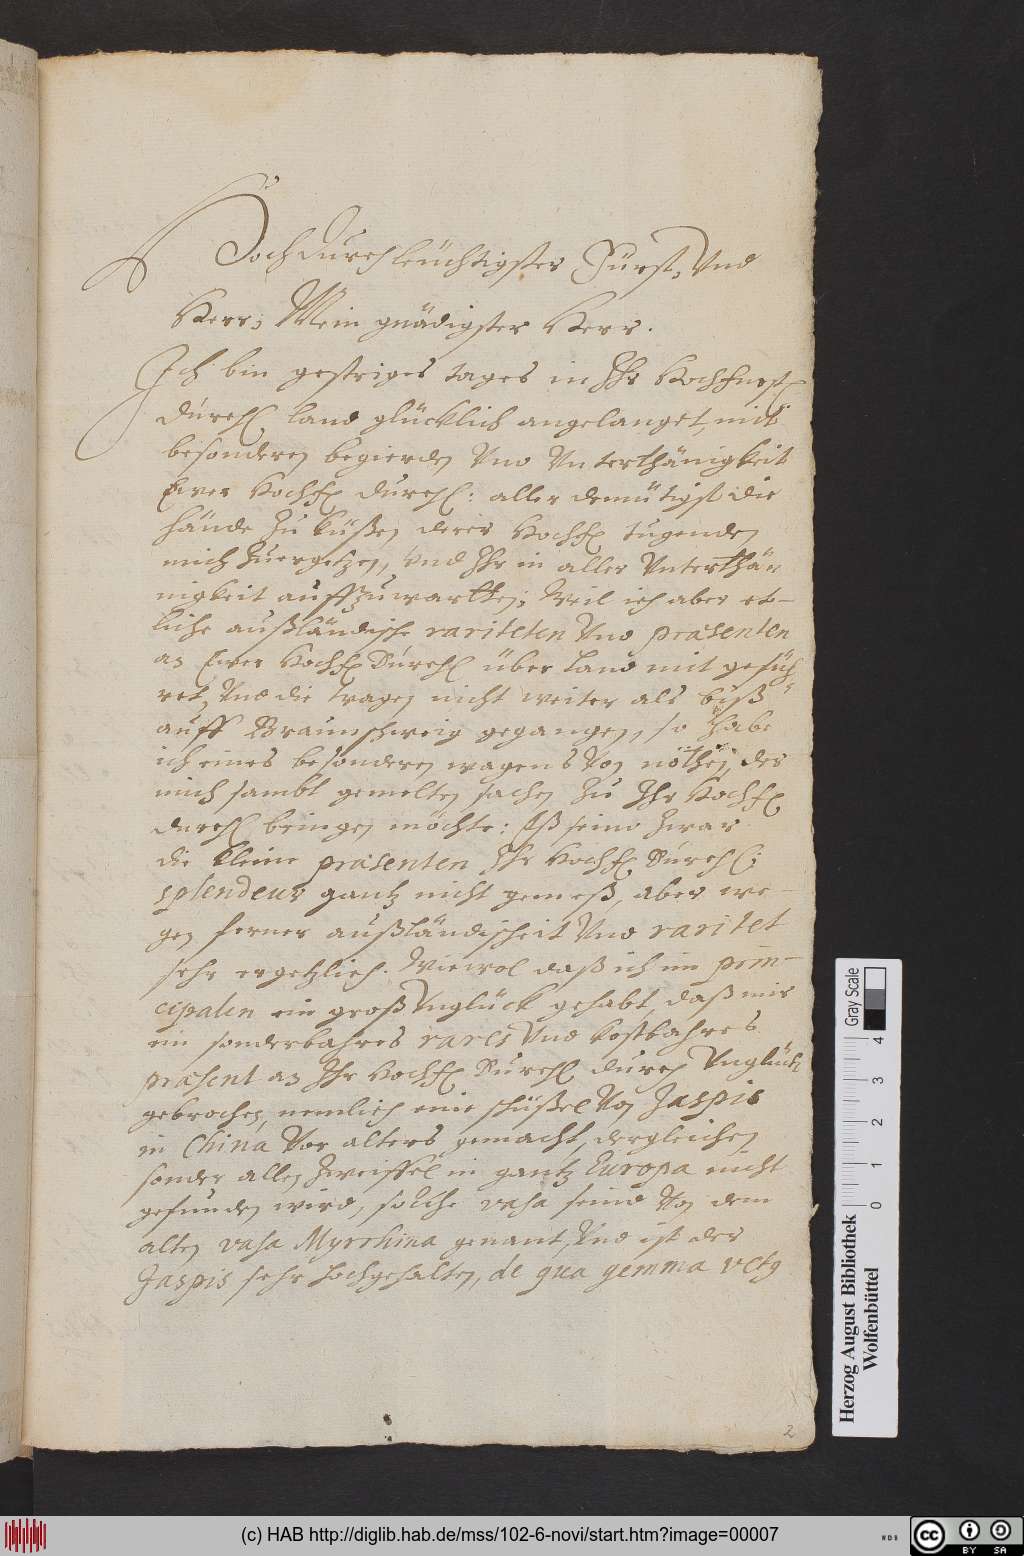 Hochdurchleüchtigster Fürst, Vnd
Herr, Mein gnädigster Herr.
Ich bin gestriges tages in Ihr Hochfürstl
dúrchl land glücklich angelanget, mit
besonderen begierden Vnd Vnterthänigkeit
Ewer Hochfl durchl: aller demütigst die
hände zu küßen, derer Hochfl tugenden
mich zuergetzen, Vnd Ihr in aller Vnterthä-
nigkeit auffzuwartten; Weil ich aber et-
liche außländische rariteten Vnd præsenten
an Ewer Hochfl Dúrchl über land mit gefüh
ret, Vnd die wagen nicht weiter als biß
auff Braunschweig gegangen, so habe
ich eines besonderen wagens Von nöthen, der
mich sambt gemelten sachen zu Ihr Hochfl
durchl bringen möchte: Eß seind zwar
die kleine præsenten Ihr Hochfl Dúrchl:
splendeur gantz nicht gemeß, aber we-
gen ferner außländischeit Vnd raritet
sehr ergetzlich. Wiewol daß ich im prin-
cipalen ein groß Vnglück gehabt, daß mir
ein sonderbahres rares Vnd kostbahres
præsent an Ihr Hochfl Dúrchl durch Vnglück
gebrochen, nemlich eine schüßel Von Jaspis
in China Vor alters gemacht, dergleichen
sonder allen zweiffel in gantz Europa nicht
gefunden wird, solche vasa seind Von dem
alten vasa Myrrhina genant, Vnd ist der
Jaspis sehr hochgehalten, de qua gemma vetg
2
Herzog August Bibliothek
Wolfenbüttel
Gray Scale
0 1 2 3 4
(c) HAB http://diglib.hab.de/mss/102-6-novi/start.htm?image=00007
WDB
cc BY SA